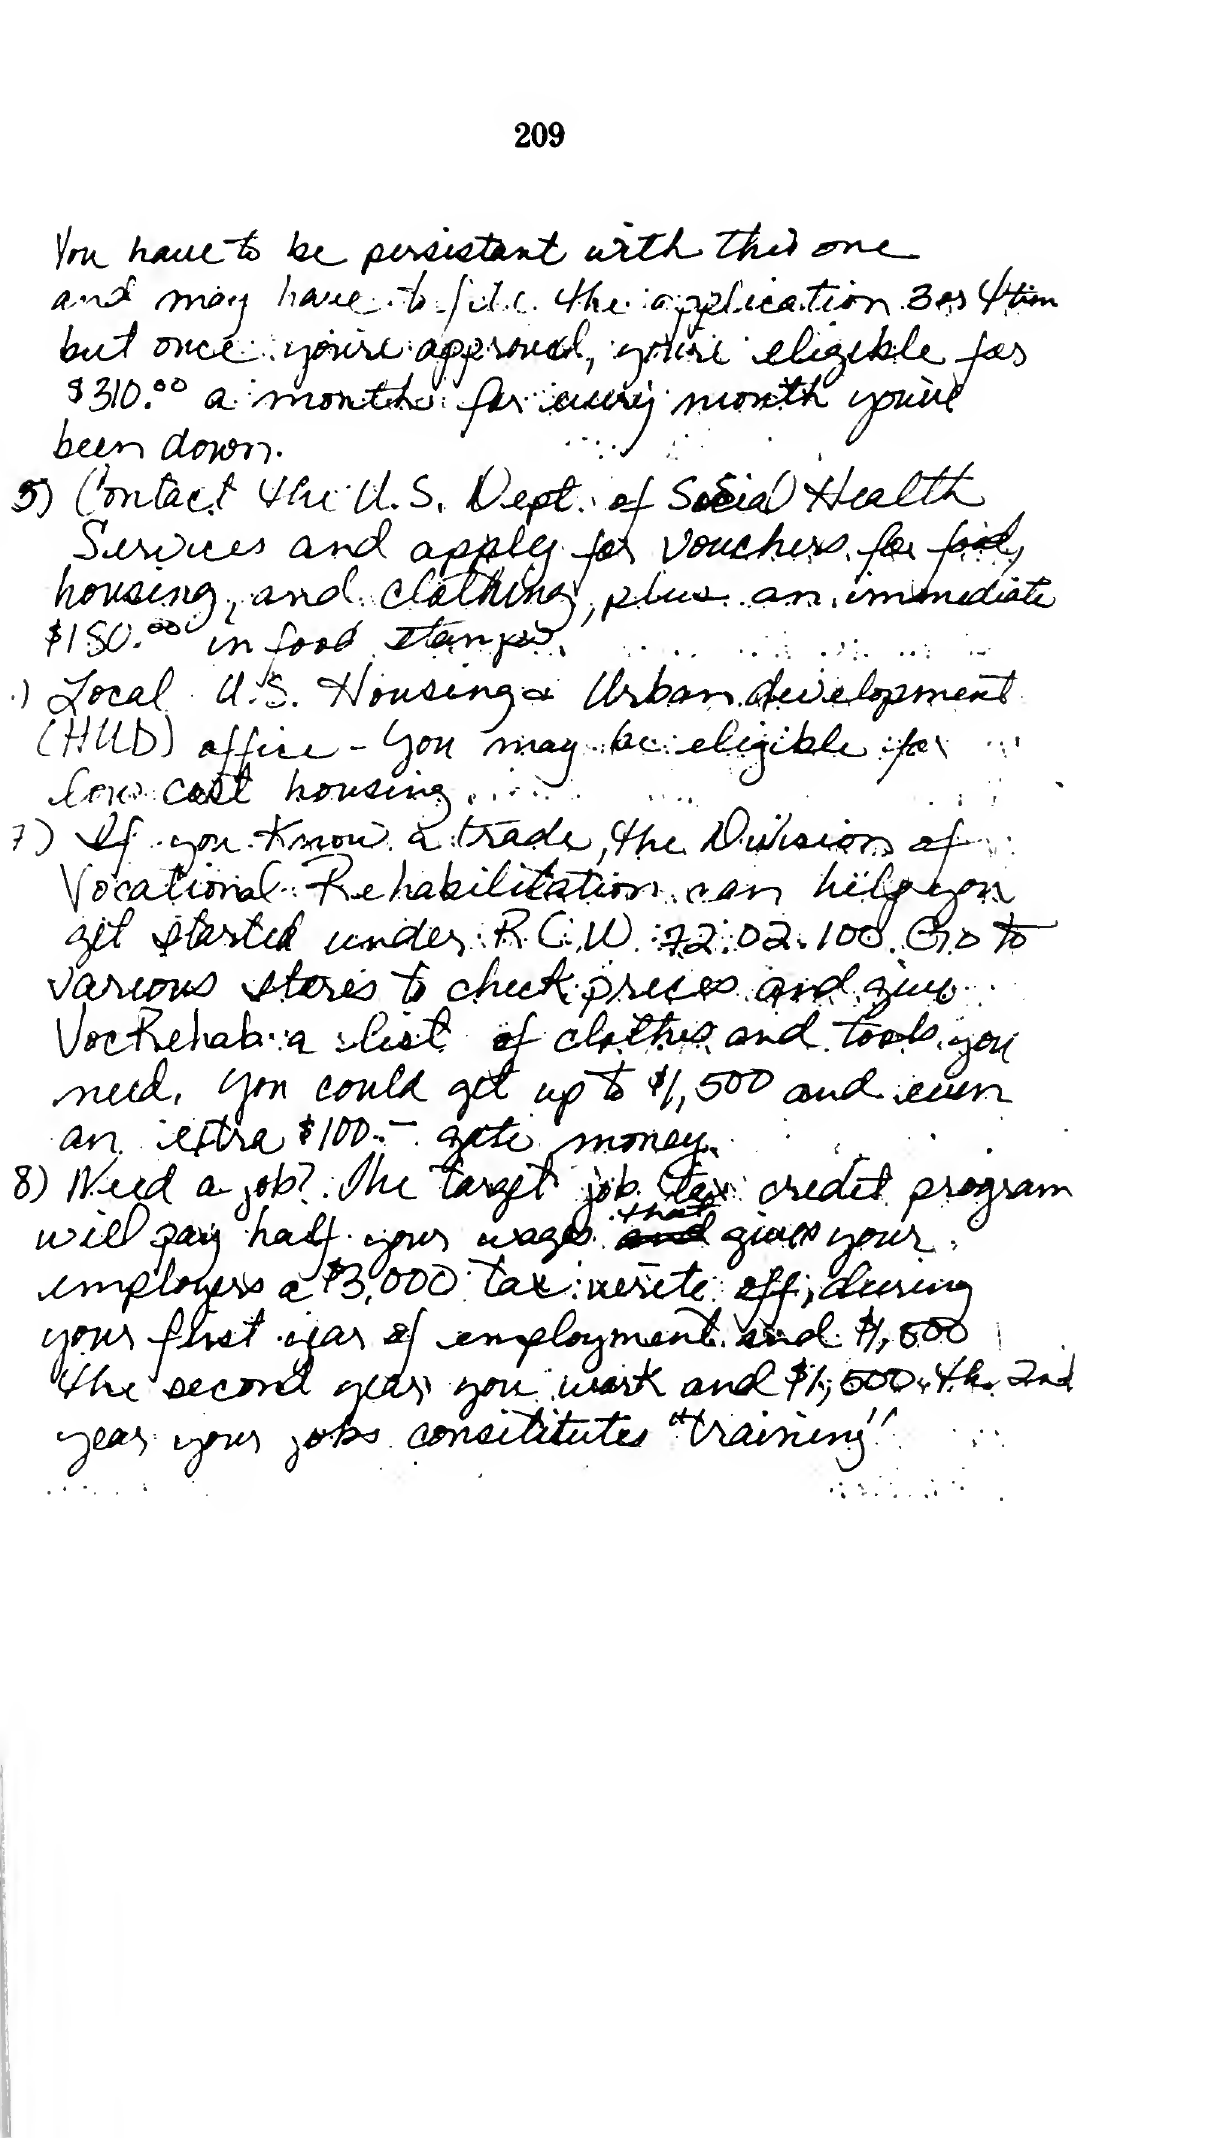 209
You have to be persistant with this one
and may have to file the application 3 or 4 tim
but once you're approved, you're eligible for
$310.00 a month for every month you've
been down.
5) Contact the U.S. Dept. of Social Health
Services and apply for vouchers for food,
housing, and clothing, plus an immediate
$150.00 in food stamps.
.) Local U.S. Housing & Urban development
(HUD) office - You may be eligible for
low cost housing.
7) If you know a trade, the Division of
Vocational Rehabilitation can help you
get started under R.C.W. 72.02.100. Go to
various stores to check prices and give
Voc Rehab a list of clothes and tools you
need. You could get up to $1,500 and even
an extra $100.- gate money.
8) Need a job? The target job tax credit program
will pay half your wages that gives your
employers a $3,000 tax write off, during
your first year of employment and $1,500
the second year you work and $1,500 the 2nd
year your jobs consititutes "training"